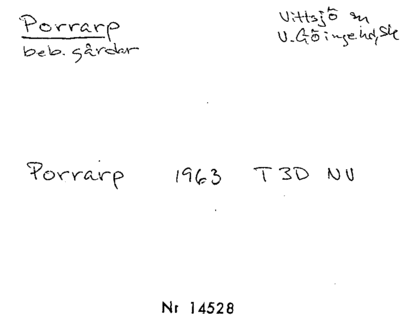 Porrarp
beb. gårdar
Vittsjö sn
V. Göinge hd, Sk
Porrarp 1963 T 3D NV
Nr 14528